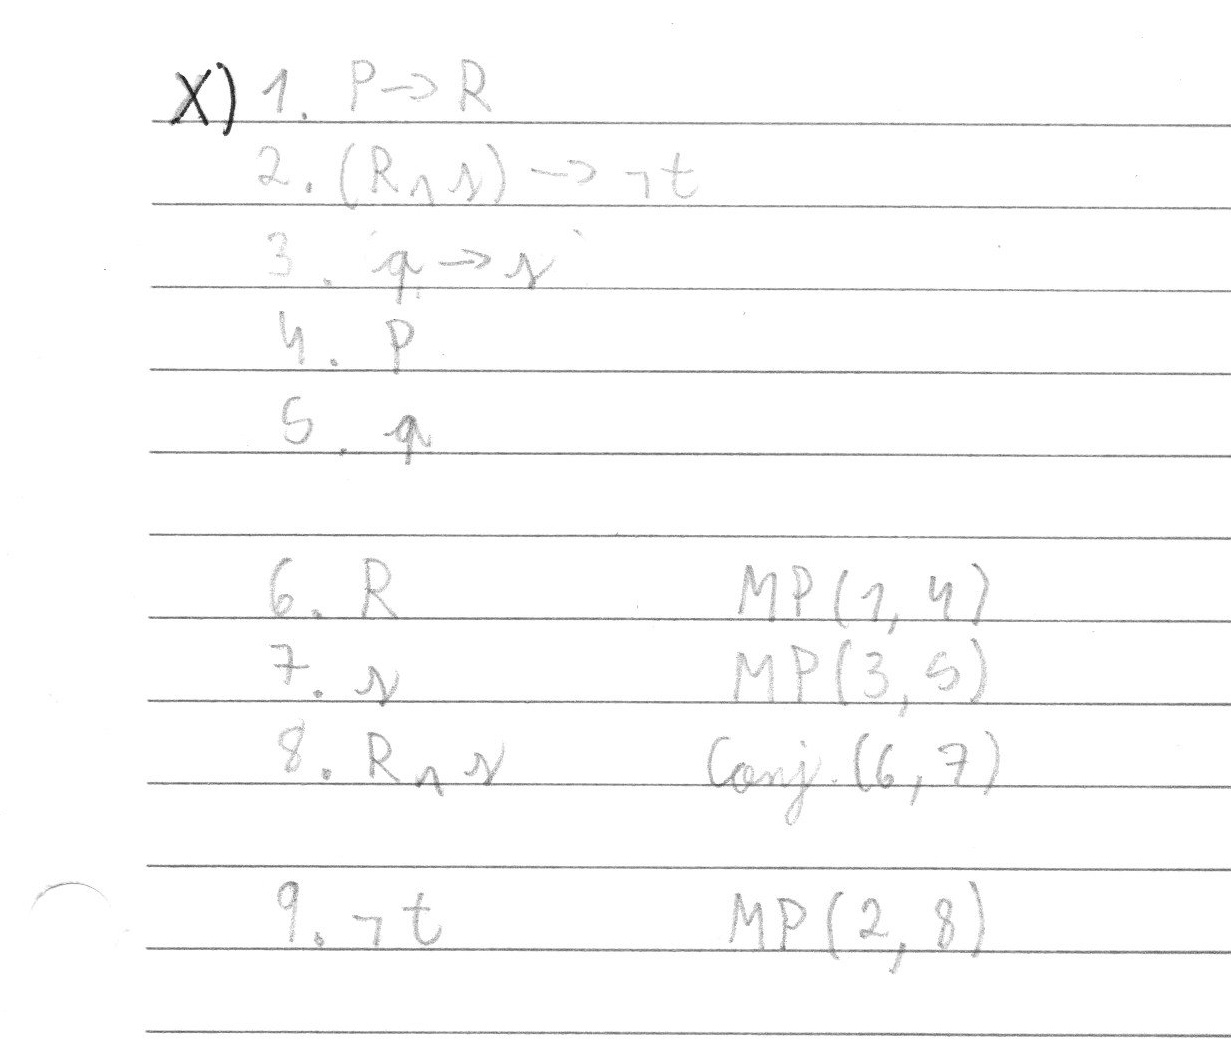 X) 1. P → R
2. (R ∧ s) → ¬t
3. q → s
4. P
5. q
6. R MP(1,4)
7. s MP(3,5)
8. R ∧ s Conj. (6,7)
9. ¬t MP(2,8)